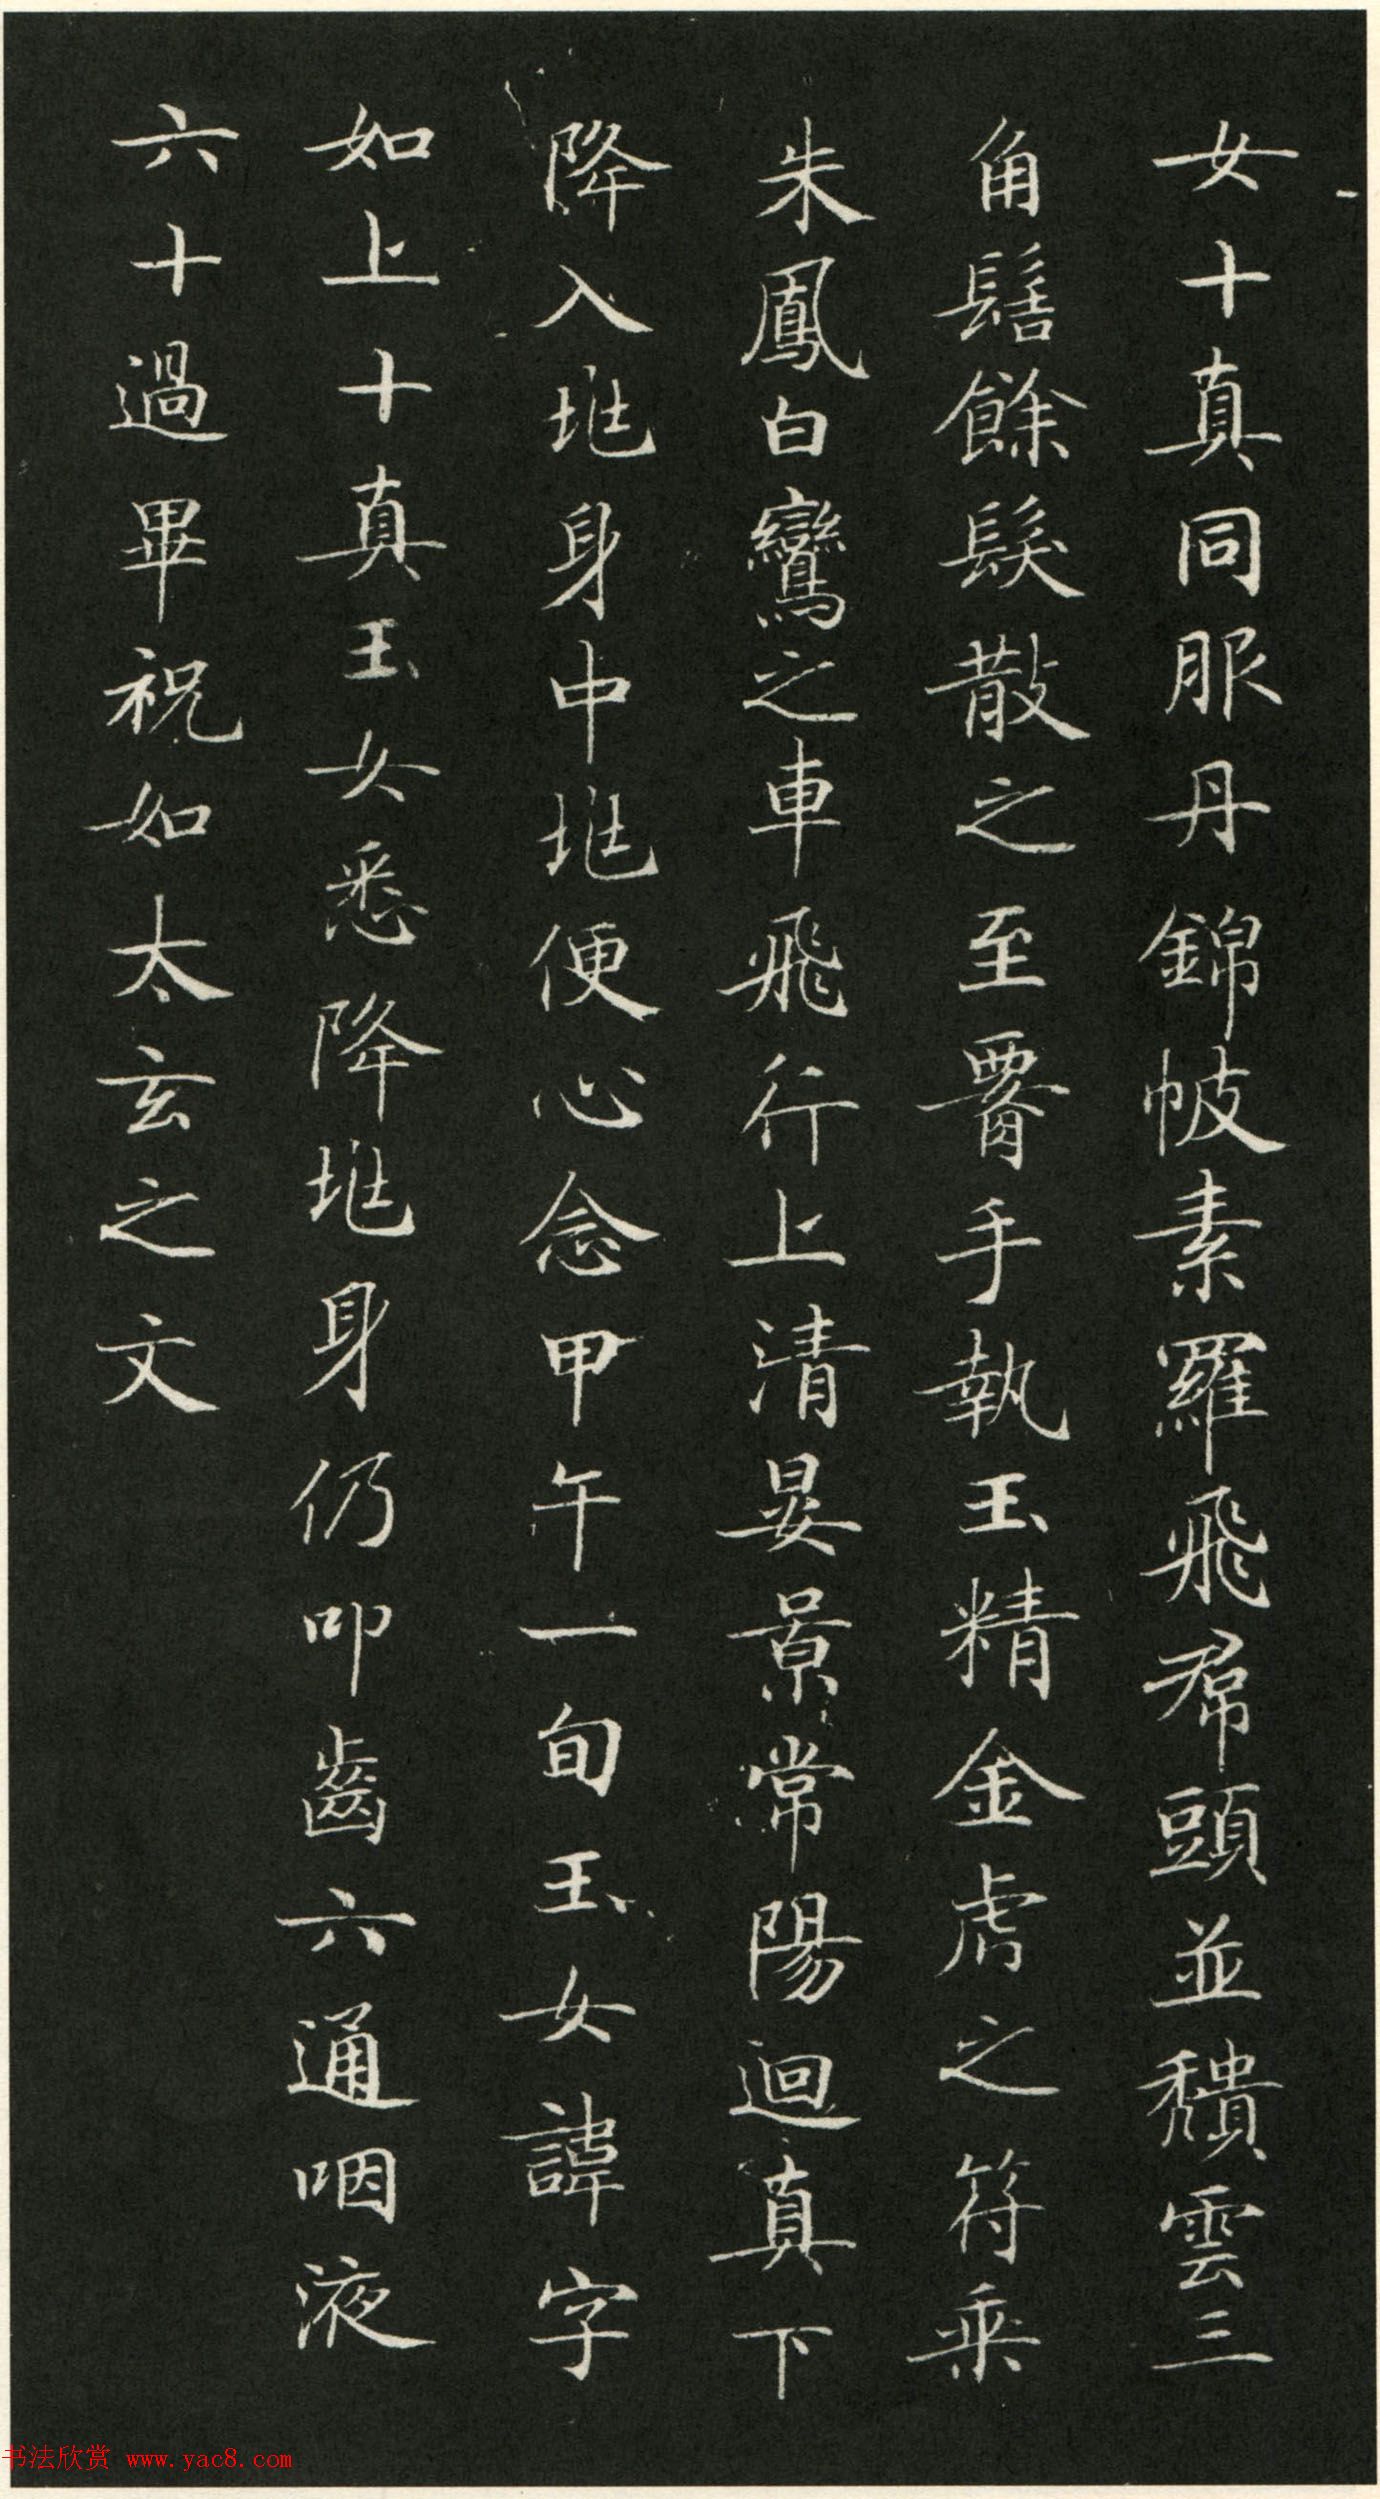 女十真同服丹錦帔素羅飛帬頭並穨雲三
角髻餘髮散之至𦝫手執玉精金虎之符乘
朱鳳白鸞之車飛行上清晏景常陽迴真下
降入地身中地便心念甲午一旬玉女諱字
如上十真玉女悉降地身仍叩齒六通咽液
六十過畢祝如太玄之文
书法欣赏 www.yac8.com